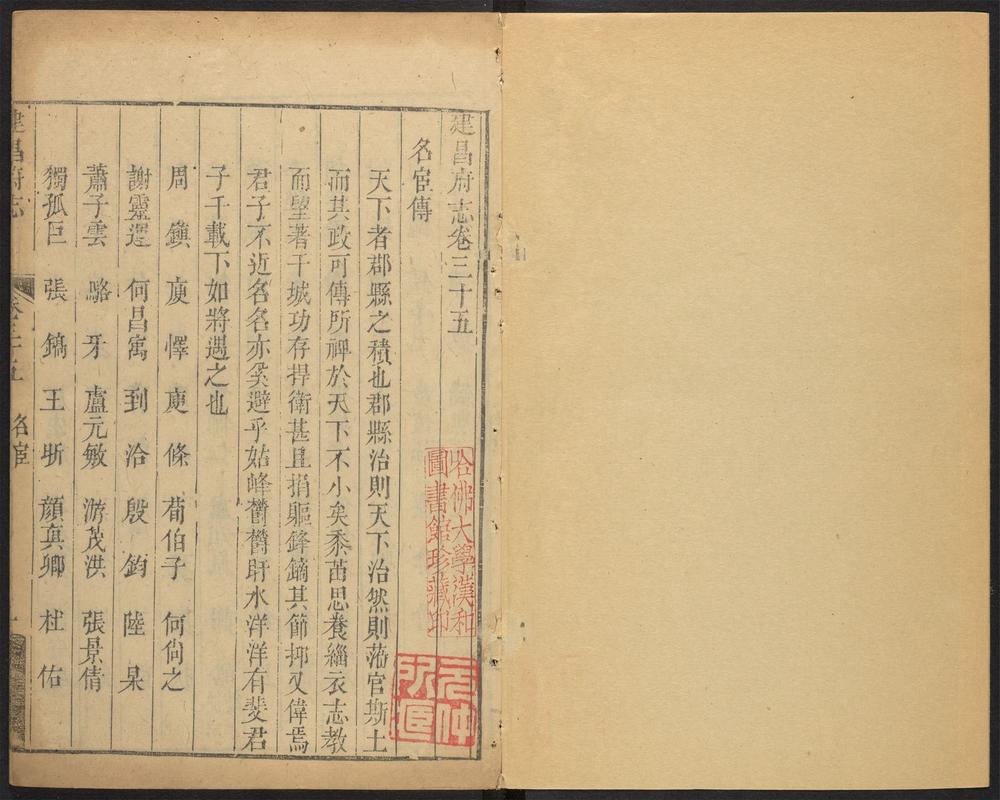 建昌府志卷三十五
名宦傳
天下者郡縣之積也郡縣治則天下治然則蒞官斯土
而其政可傳所裨於天下不小矣黍苗思養緇衣志教
而壁著干城功存捍衛甚且捐軀鋒鏑其節抑又偉焉
君子不近名名亦奚避乎姑峰欝欝盱水洋洋有斐君
子千載下如將遇之也
周鎮 庾懌 庾條 荀伯子 何尙之
謝靈運 何昌寓 到洽 殷鈞 陸杲
蕭子雲 駱牙 盧元敏 游茂洪 張景倩
獨孤巨 張鎬 王昕 顔真卿 杜佑
建昌府志 卷三十五 名宦 一
哈佛大學漢和
圖書館珍藏印